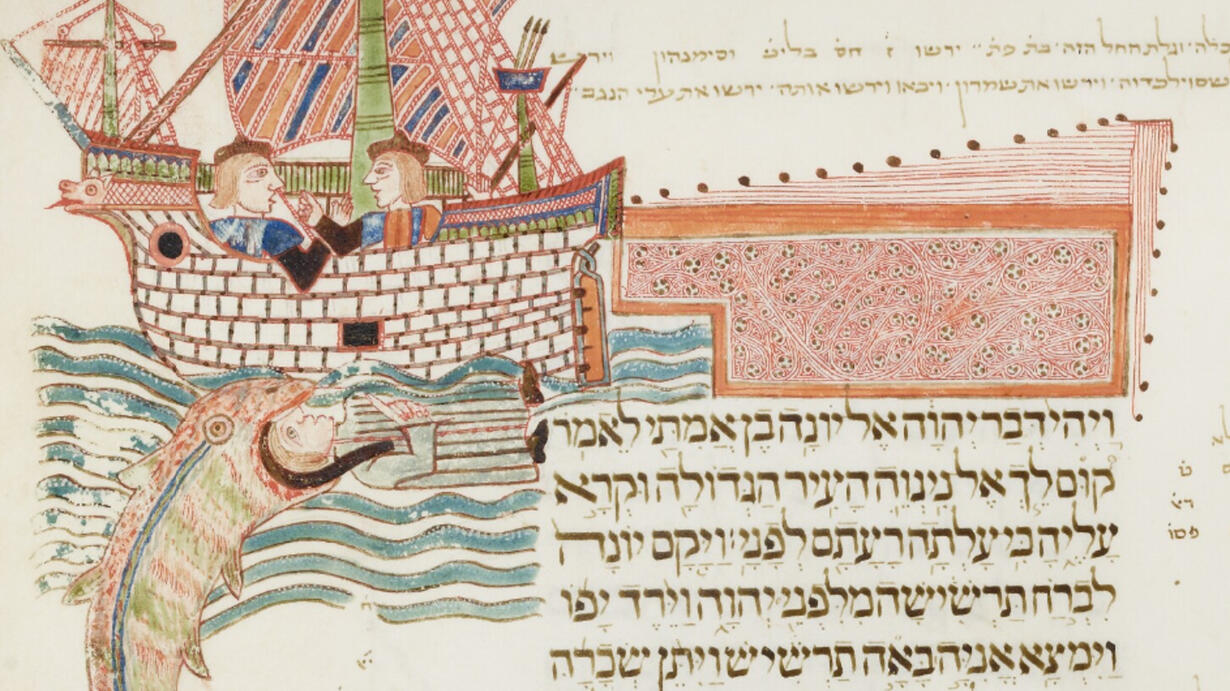 הזה ירשו ז חס וסימנהון
וירשו את שמרון׳ ויבאו וירשו אותה׳ ירשו את ערי הנגב׳
וַיְהִי דְּבַר יְהוָה אֶל יוֹנָה בֶן אֲמִתַּי לֵאמֹר
קוּם לֵךְ אֶל נִינְוֵה הָעִיר הַגְּדוֹלָה וּקְרָא
עָלֶיהָ כִּי עָלְתָה רָעָתָם לְפָנָי׃ וַיָּקָם יוֹנָה
לִבְרֹחַ תַּרְשִׁישָׁה מִלִּפְנֵי יְהוָה וַיֵּרֶד יָפוֹ
וַיִּמְצָא אֳנִיָּה בָּאָה תַרְשִׁישׁ וַיִּתֵּן שְׂכָרָהּ